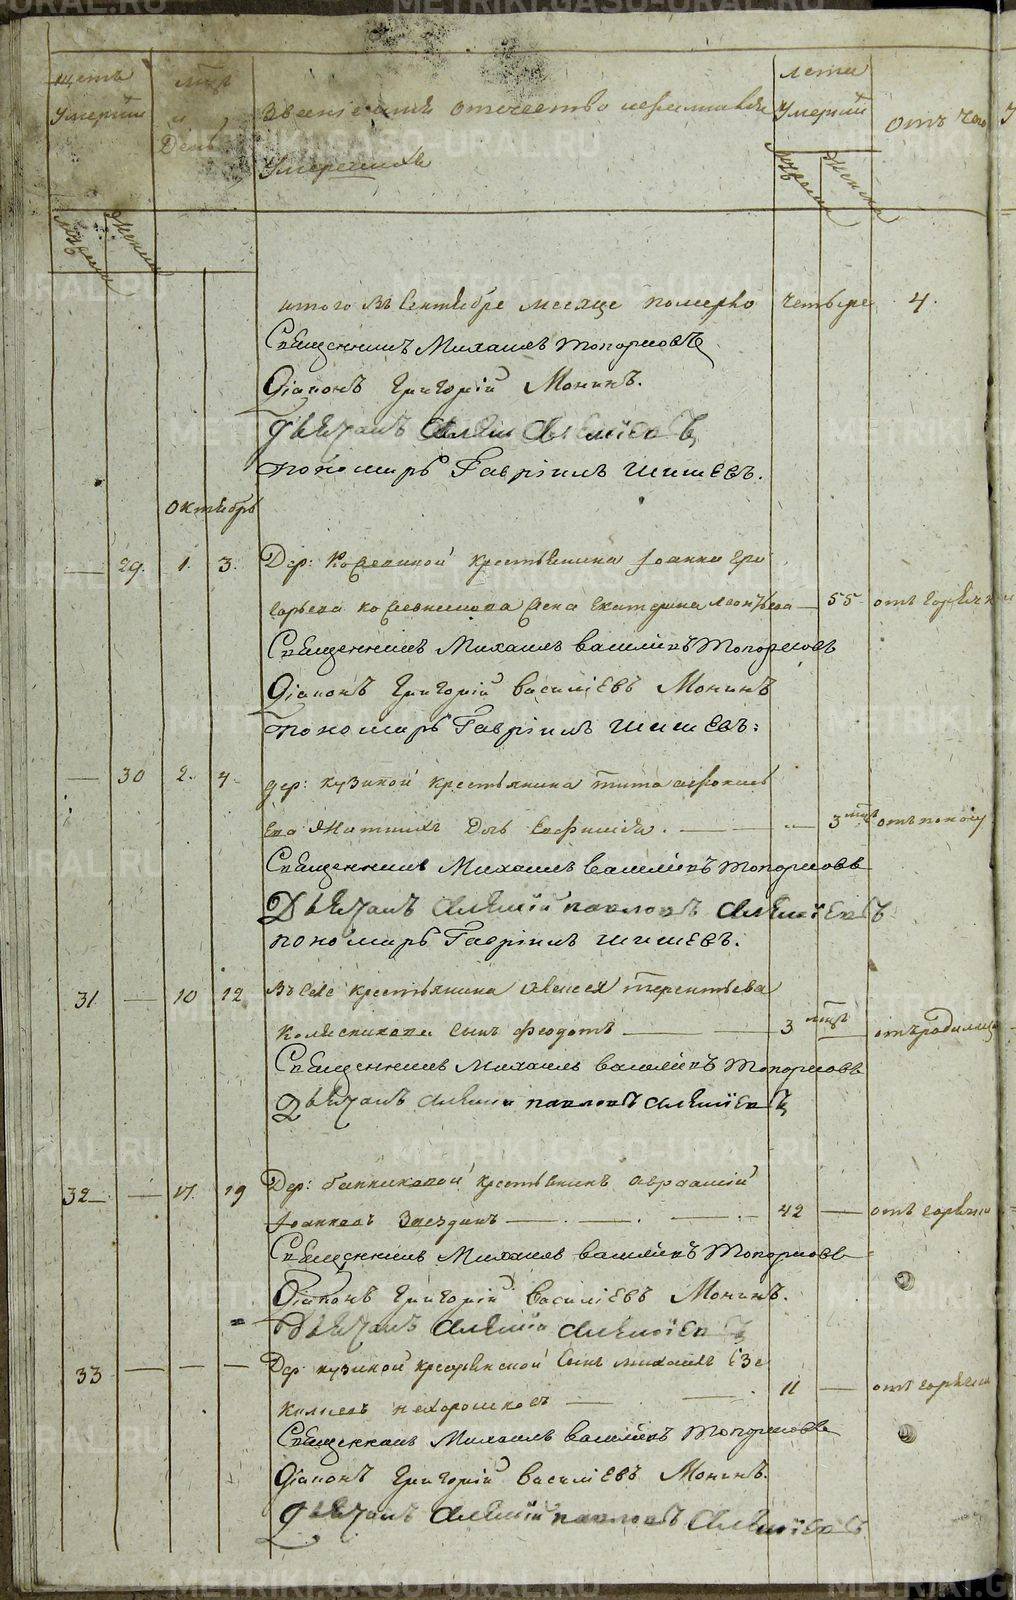 METRIKI.GASO-URAL.RU
щетъ
умершихъ
мцъ
и
День
Званіе имя отечество и фамилія
умершихъ
лета
умершихъ
отъ чего
мужеска
женска
мужеска
женска
итого въ Сентябре месяце померло четыре 4.
Священникъ Михаилъ Топорковъ
Діаконъ Григорій Монинъ.
Дьячокъ Алексій Алексіевъ
пономарь Гавріилъ Шишевъ.
октябрь
— 29. 1. 3. Дер: крестьянина Іоанна Гри
горьева жена Екатерина Леонтьева — 55 отъ горячки
Священникъ Михаилъ Василіевъ Топорковъ
Діаконъ Григорій Василіевъ Монинъ
Пономарь Гавріилъ Шишевъ:
— 30 2. 4. дер: кузиной крестьянина Тита
ева дочь Евфимія. — 3 мцъ отъ поносу
Священникъ Михаилъ Василіевъ Топорковъ
Дьячокъ Алексій Павловъ Алексіевъ
пономарь Гавріилъ Шишевъ.
31 — 10 12 Въ селе крестьянина Алексея Терентьева
Колясникова сынъ Феодотъ — 3 мцъ — отъ родимца
Священникъ Михаилъ Василіевъ Топорковъ
Дьячокъ Алексій Павловъ Алексіевъ
32 — 17. 19 Дер: крестьянинъ Авраамій
Іоанновъ — 42 — отъ горячки
Священникъ Михаилъ Василіевъ Топорковъ
Діаконъ Григорій Василіевъ Монинъ.
Дьячокъ Алексій Алексіевъ
33 — — — Дер кузиной крестьянской сынъ Михаилъ Езе
киилевъ Нехорошковъ — 11 — отъ горячки
Священникъ Михаилъ Василіевъ Топорковъ
Діаконъ Григорій Василіевъ Монинъ.
Дьячокъ Алексій Павловъ Алексіевъ